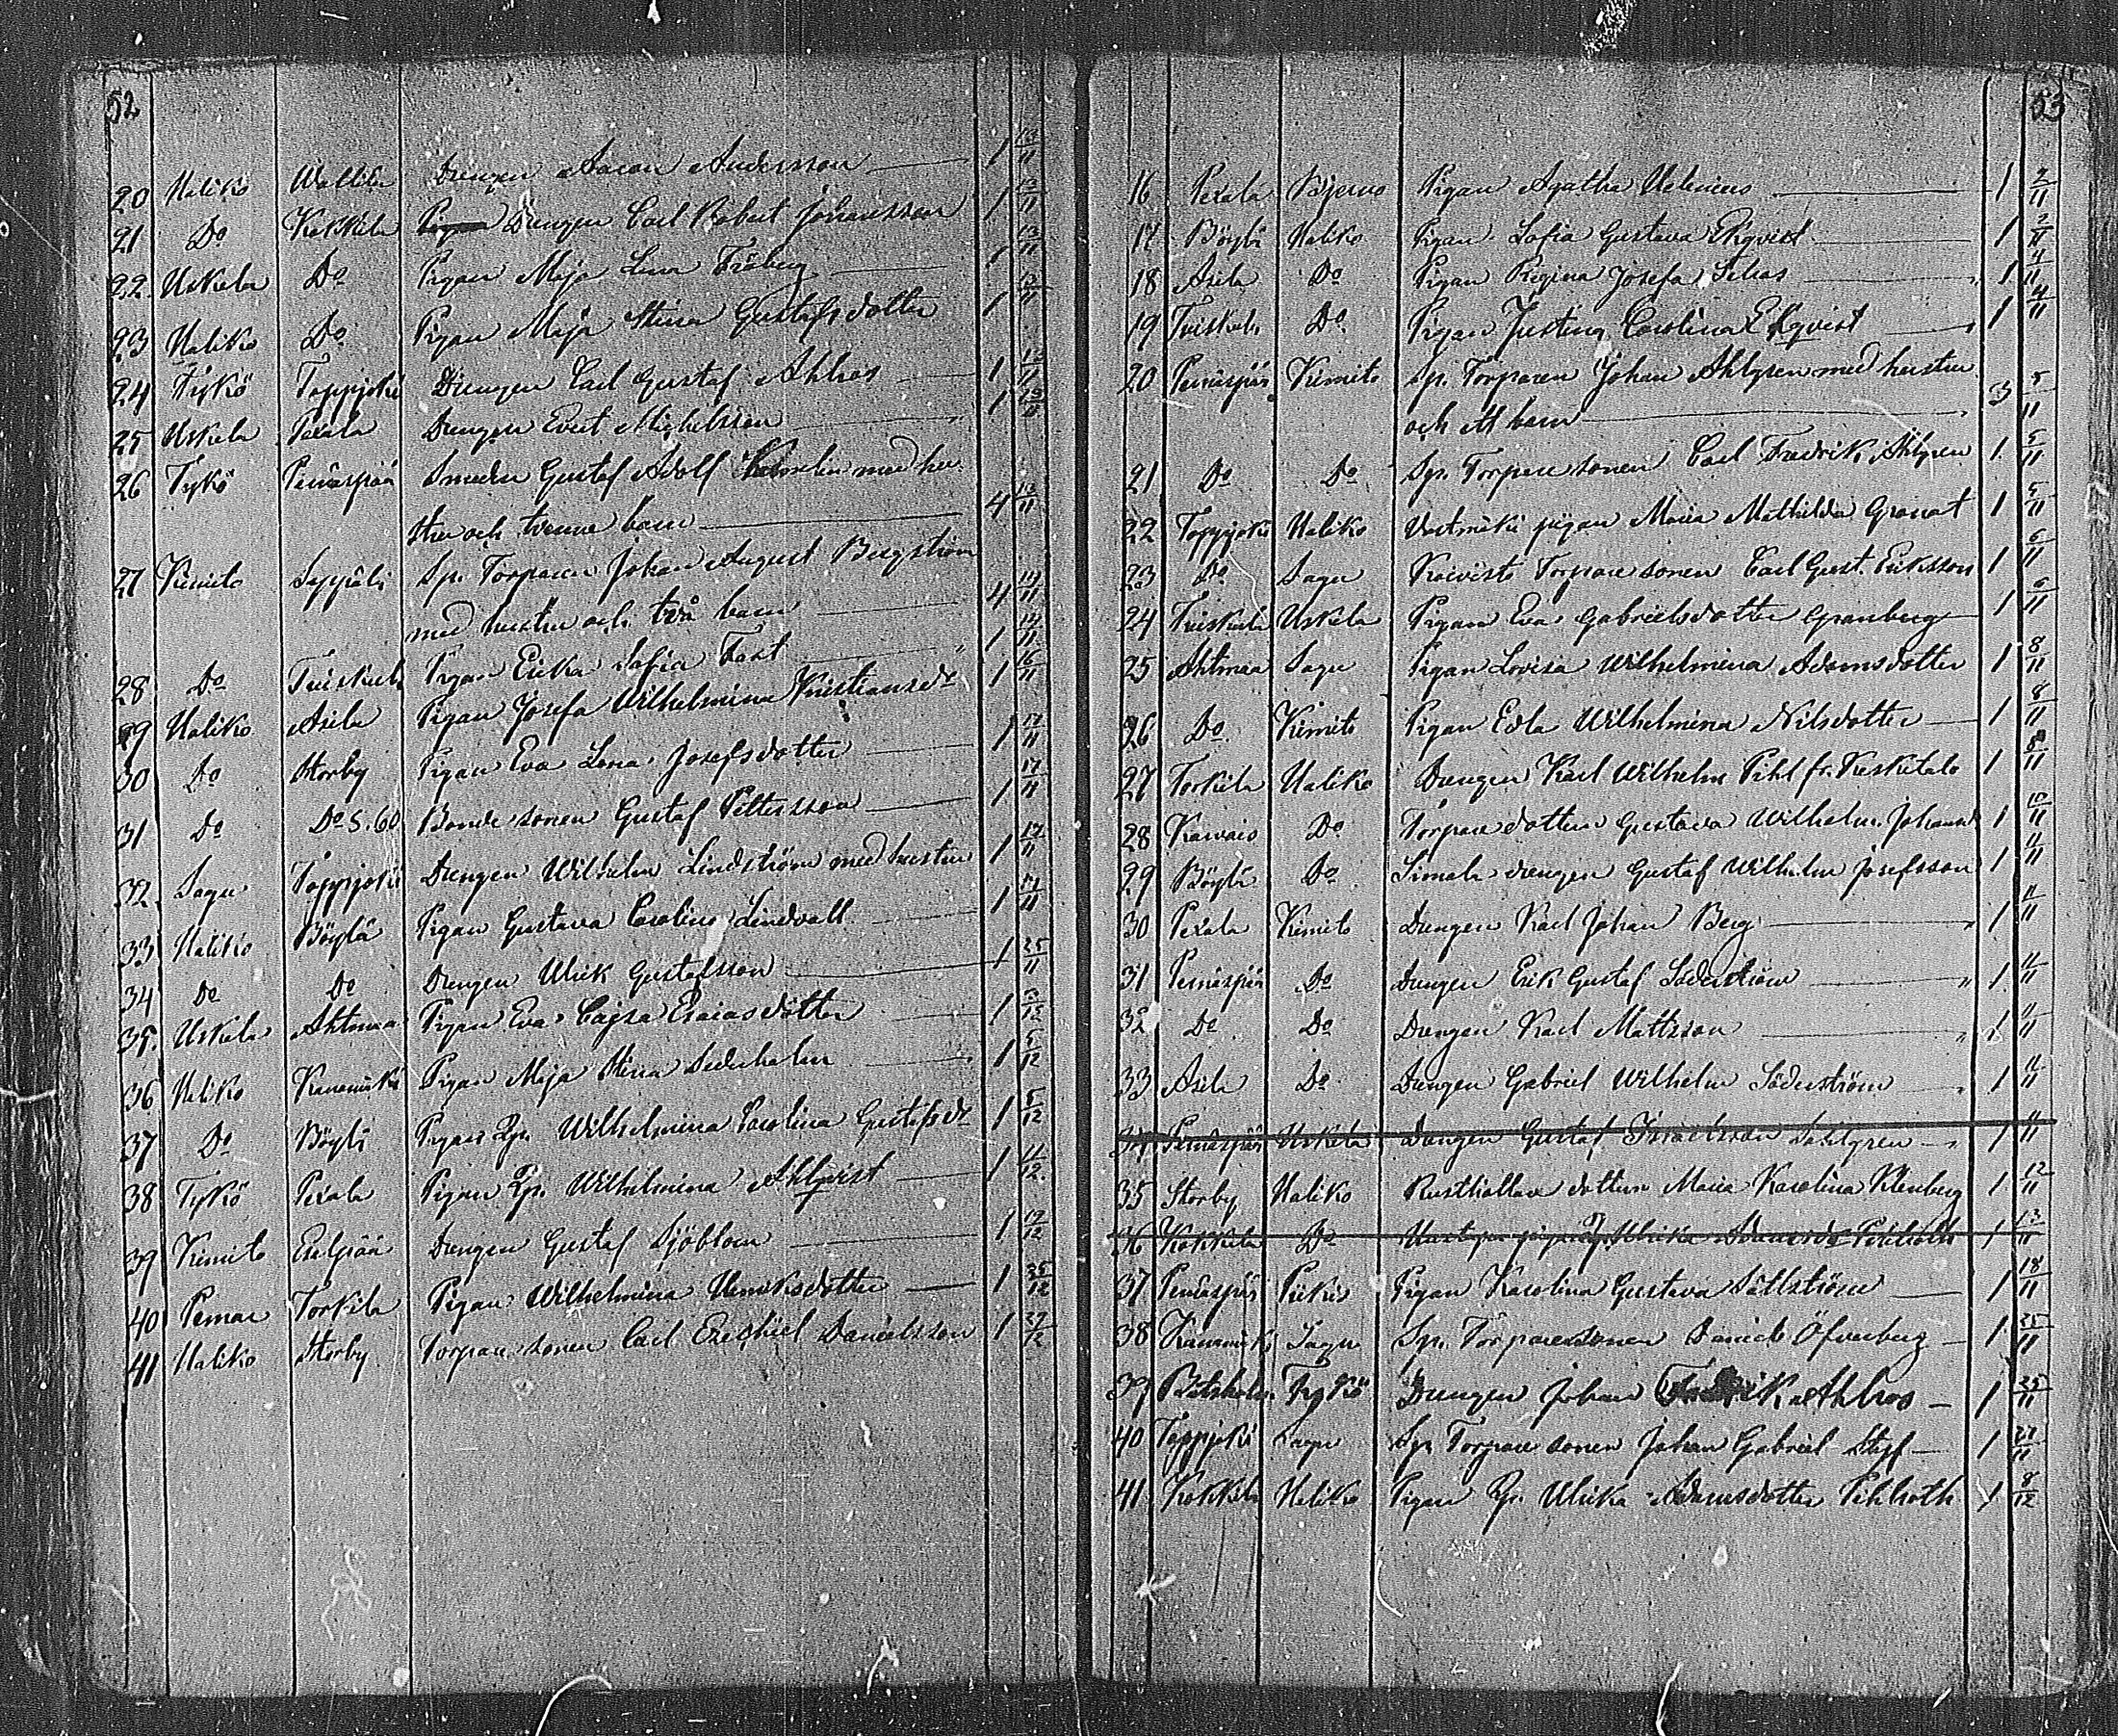 52
20 Haliko Wallila Drengen Aaron Andersson 1 13/11
21 Do Kokkila Drengen Carl Robert Johansson 1 13/11
22 Uskela Do Pigan Maja Lena Fröberg 1 13/11
23 Haliko Do Pigan Maja Stina Gustafsdotter 1 13/11
24 Tykö Toppjoki Drengen Carl Gustaf Ahlros 1 12/11
25 Uskela Pexala Drengen Evert Michelsson 1
26 Tykö Pernäspää Smeden Gustaf Adolf med hu-
stru och tvenne barn 4 13/11
27 Kimito Seppälä Sp. Torparen Johan August Bergström
med hustru och två barn 4 14/11
28 Do Tuiskula Pigan Erika Sofia Fast 1 14/11
29 Haliko Asila Pigan Josefa Wilhelmina Kristiansdr 1 16/11
30 Do Storby Pigan Eva Lena Josefsdotter 1 17/11
31 Do Do S. 60 Bonde sonen Gustaf Pettersson 1 17/11
32 Sagu Toppjoki Drengen Wilhelm Lindström med hustru 1 17/11
33 Haliko Böylä Pigan Gustava Carolina Lindvall 1 21/11
34 Do Do Drengen Ulrik Gustafsson 1 25/11
35. Uskela Ahtmaa Pigan Eva Cajsa Esaiasdotter 1 3/12
36 Haliko Kanamäki Pigan Maja Stina Sederholm 1 5/12
37 Do Böylä Pigan Qp. Wilhelmina Carolina Gustafsdr 1 5/12
38 Tykö Pexala Pigan Qp. Wilhelmina Ahlqvist 1 11/12
39 Kimito Exelpää Drengen Gustaf Sjöblom 1 19/12
40 Pemar Torkila Pigan Wilhelmina Henriksdotter 1 25/12
41 Haliko Storby Torpare sonen Carl Exechiel Danielsson 1 27/12
53
16 Pexala Bjerno Pigan Agatha Helenius 1 2/11
17 Böylä Haliko Pigan Sofia Gustava Ekqvist 1 2/11
18 Asila Do Pigan Regina Josefa Selros 1 4/11
19 Tuiskula Do Pigan Justina Carolina Ekqvist 1 4/11
20 Pernäspää Kimito Sp. Torparen Johan Ahlgren med hustru
och ett barn 3 5/11
21 Do Do Sp. Torpare sonen Carl Fredrik Ahlgren 1 5/11
22 Toppjoki Haliko pigan Maria Mathilda Granat 1 5/11
23 Do Sagu Koivisto Torpare sonen Carl Gust. Eriksson 1 6/11
24 Tuiskula Uskela Pigan Eva Gabrielsdotter Granberg 1 6/11
25 Ahtmaa Sagu Pigan Lovisa Wilhelmina Adamsdotter 1 8/11
26 Do Kimito Pigan Edla Wilhelmina Nilsdotter 1 8/11
27 Torkila Haliko Drengen Karl Wilhelm Pihl fr. Keskitalo 1 8/11
28 Karvais Do Torpare dottern Gustava Wilhelm. Johansdr 1 10/11
29 Böylä Do Simola drengen Gustaf Wilhelm Josefsson 1 11/11
30 Pexala Kimito Drengen Karl Johan Berg 1 11/11
31 Pernäspää Do Drengen Erik Gustaf Söderström 1 11/11
32 Do Do Drengen Karl Mattsson 1 11/11
33 Asila Do Drengen Gabriel Wilhelm Söderström 1 11/11
34 Pernäspää Uskela Drengen Gustaf Israelsson Sahlgren 1 11/11
35 Storby Haliko Rusthållare dottern Maria Karolina Klenberg 1 12/11
36 Kokkila Do pigan Ulrika Adamsdr Pihlroth 1 13/11
37 Pernäspää Pikis Pigan Karolina Gustava Sällström 1 18/11
38 Kanamäki Sagu Sp. Torparesonen Daniel Öfverberg 1 25/11
39 Båtsholm Tykö Drengen Johan Fredrik Ahlros 1 25/11
40 Toppjoki Sagu Sp. Torpare sonen Johan Gabriel Styf 1 27/11
41 Kokkila Haliko Pigan Qp. Ulrika Adamsdotter Pihlroth 1 8/12